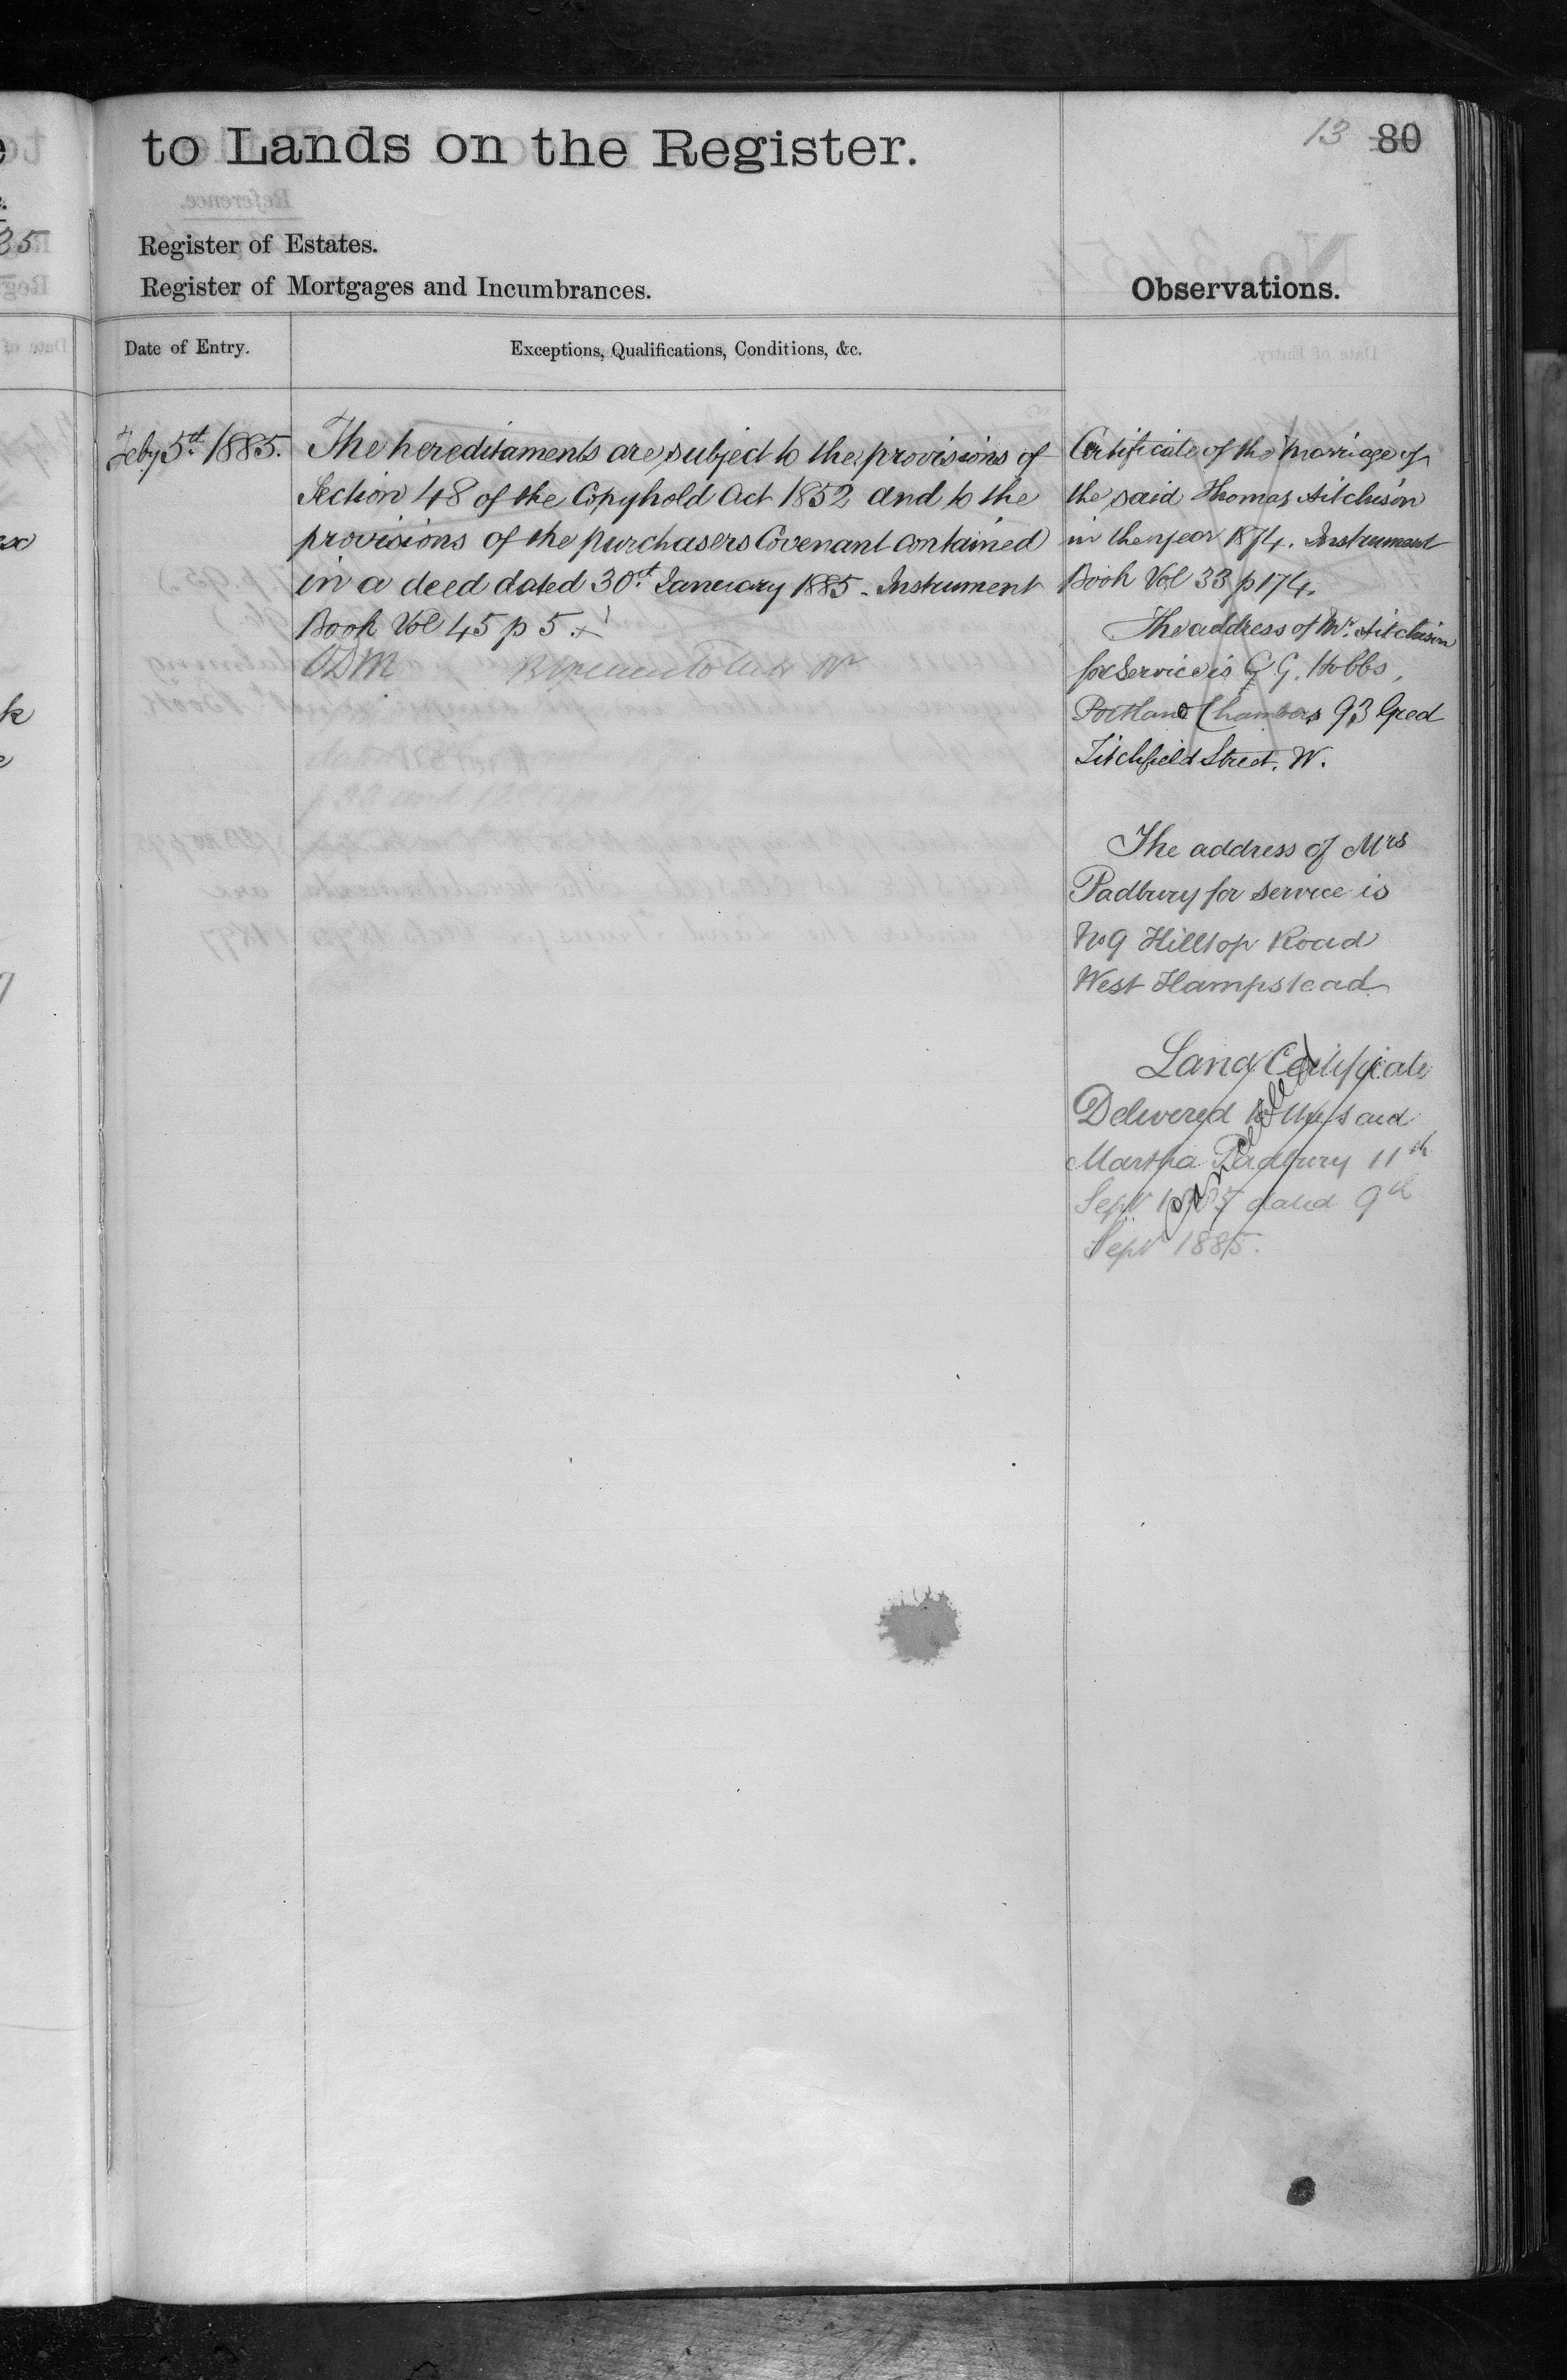 to Lands on the Register.
13 80
Register of Estates.
Register of Mortgages and Incumbrances.
Observations.
Date of Entry.
Exceptions, Qualifications, Conditions, &c.
Feby 5th. 1885.
The hereditaments are subject to the provisions of
Section 48 of the Copyhold Act 1852 and to the
provisions of the purchasers Covenant contained
in a deed dated 30th. January 1885 - Instrument
Book Vol 45 p 5.
Certificate of the marriage of
the said Thomas Aitchison
in the year 1874. Instrument
Book Vol 33 p 174.
The address of Mr. Aitchison
for service is G. Hobbs,
Portland Chambers 93 Great
Titchfield Street. W.
The address of Mrs
Padbury for service is
No 9 Hilltop Road
West Hampstead
Land Certificate
Delivered to the said
Martha Padbury 11th
Sept 1885 dated 9th
Sept 1885.
Cancelled